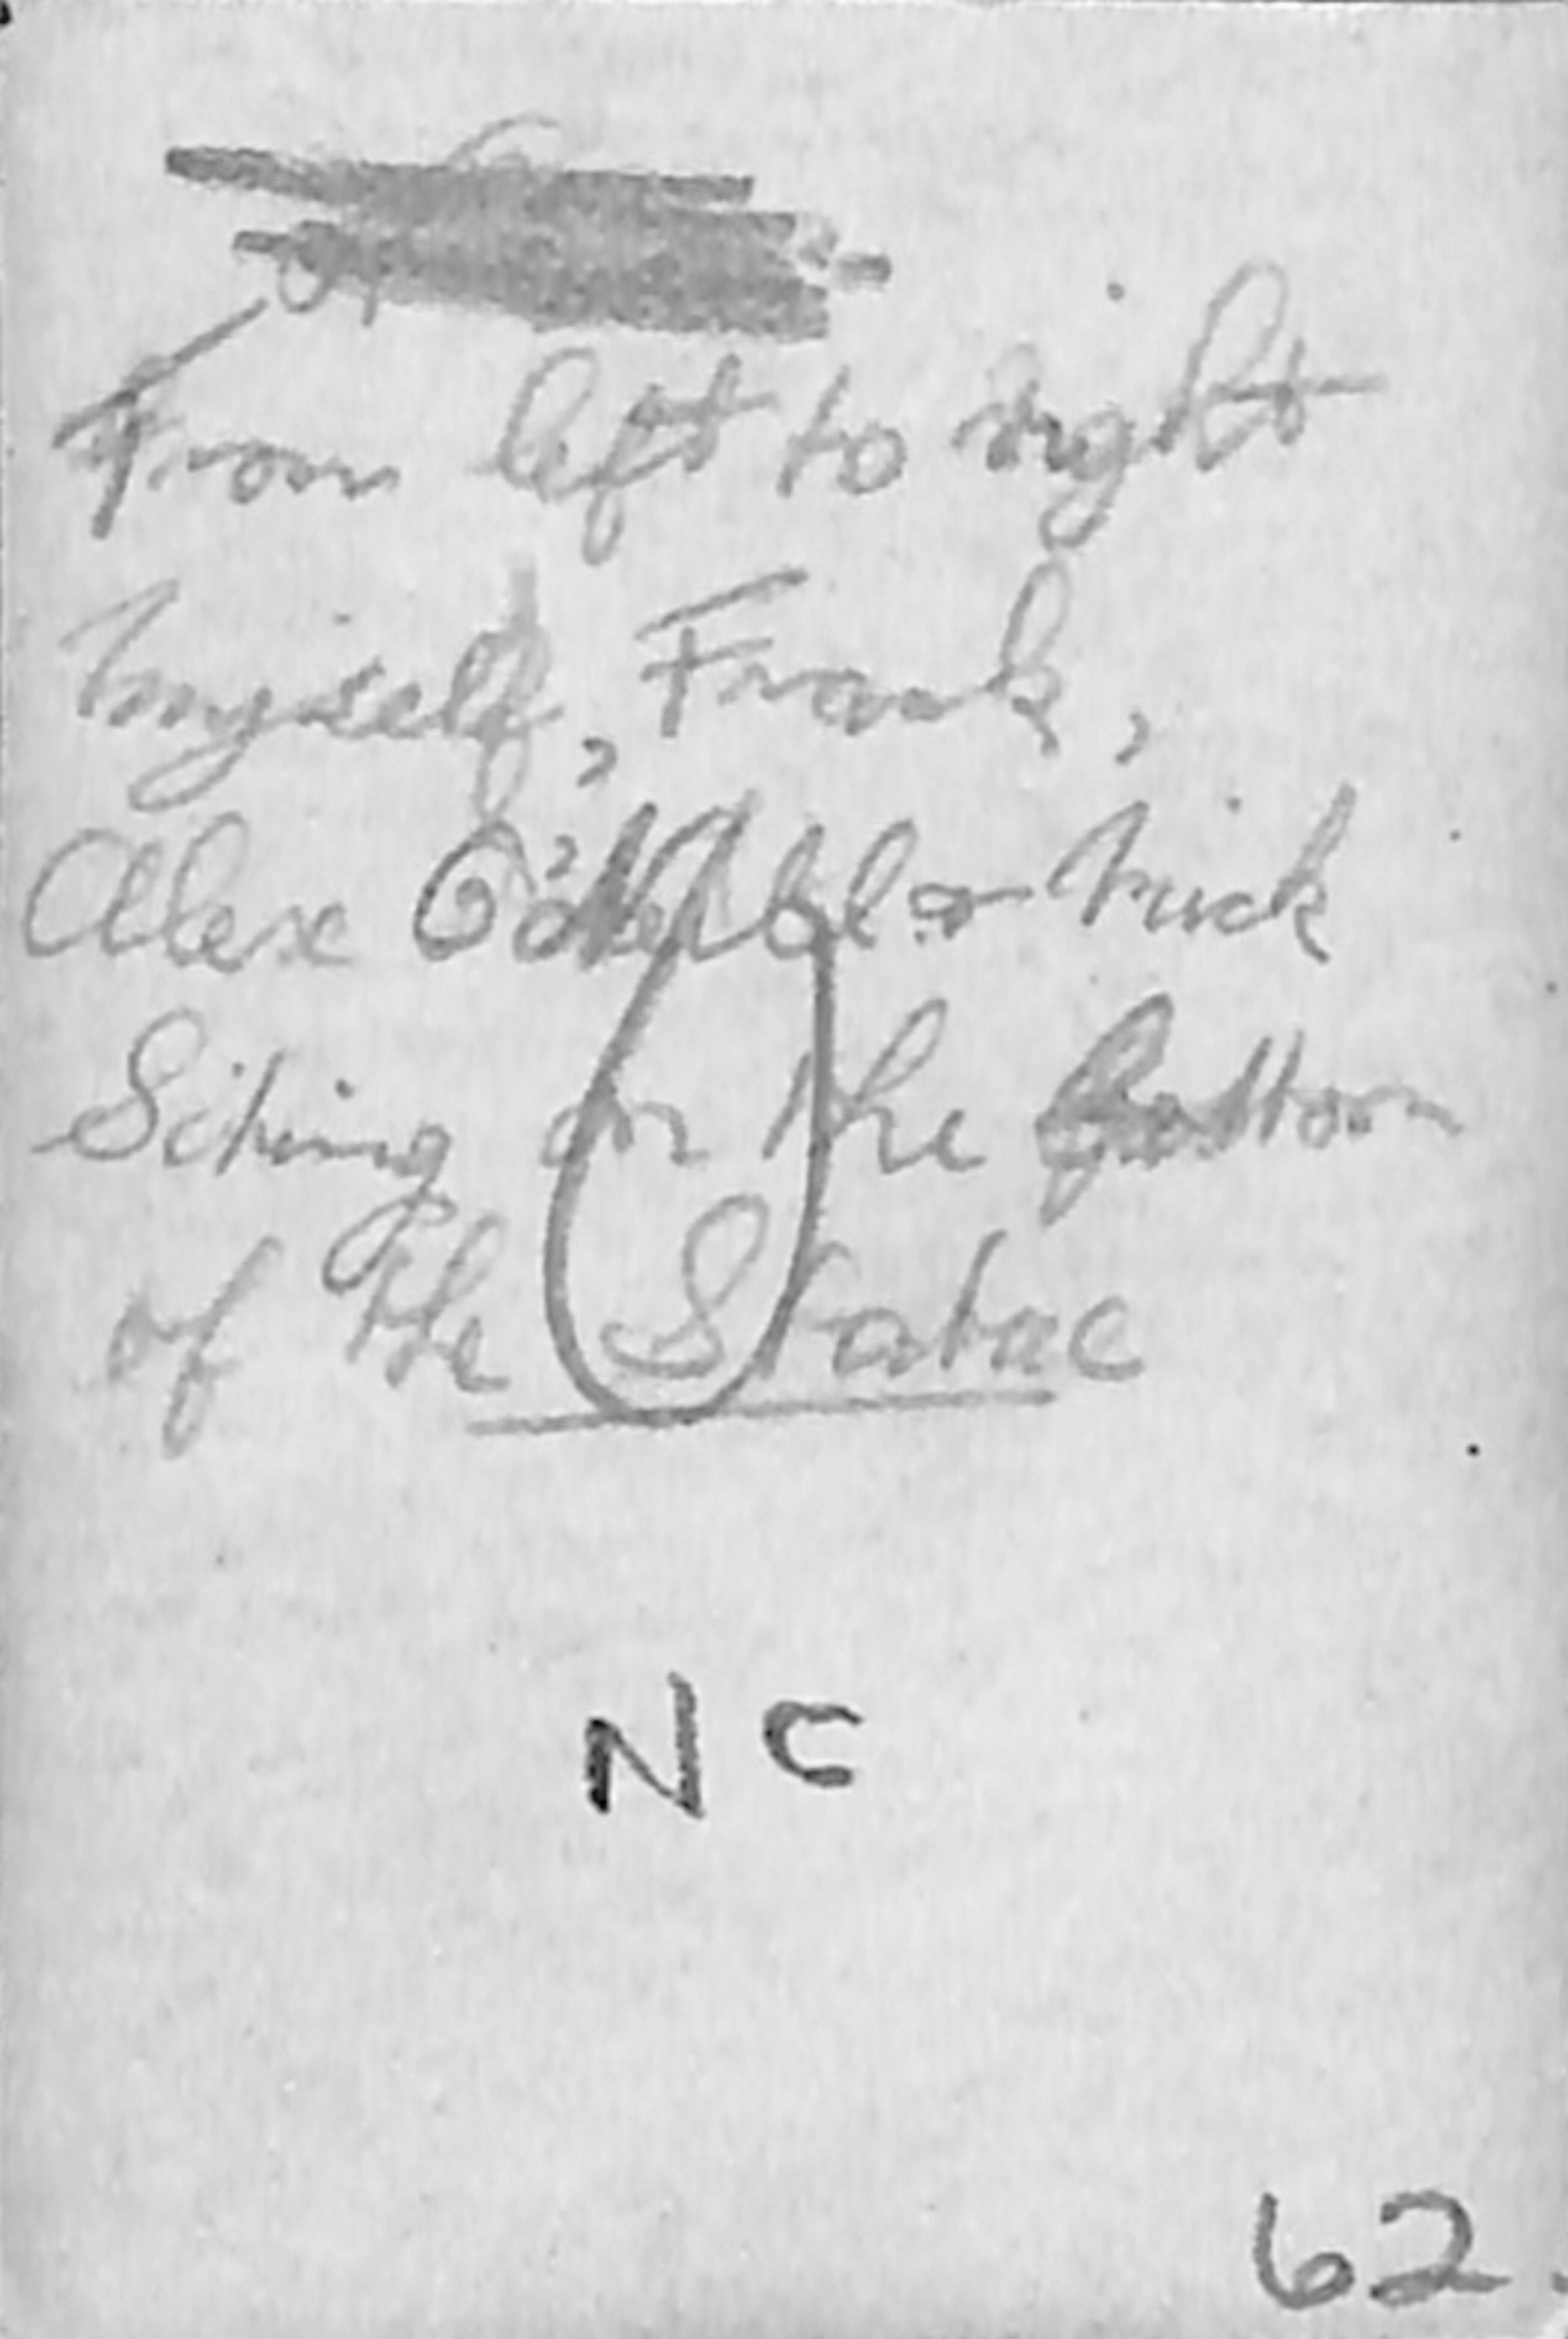 From left to right
Myself, Frank,
Alex & Nick
Siting on the bottom
of the Statue
NC
62